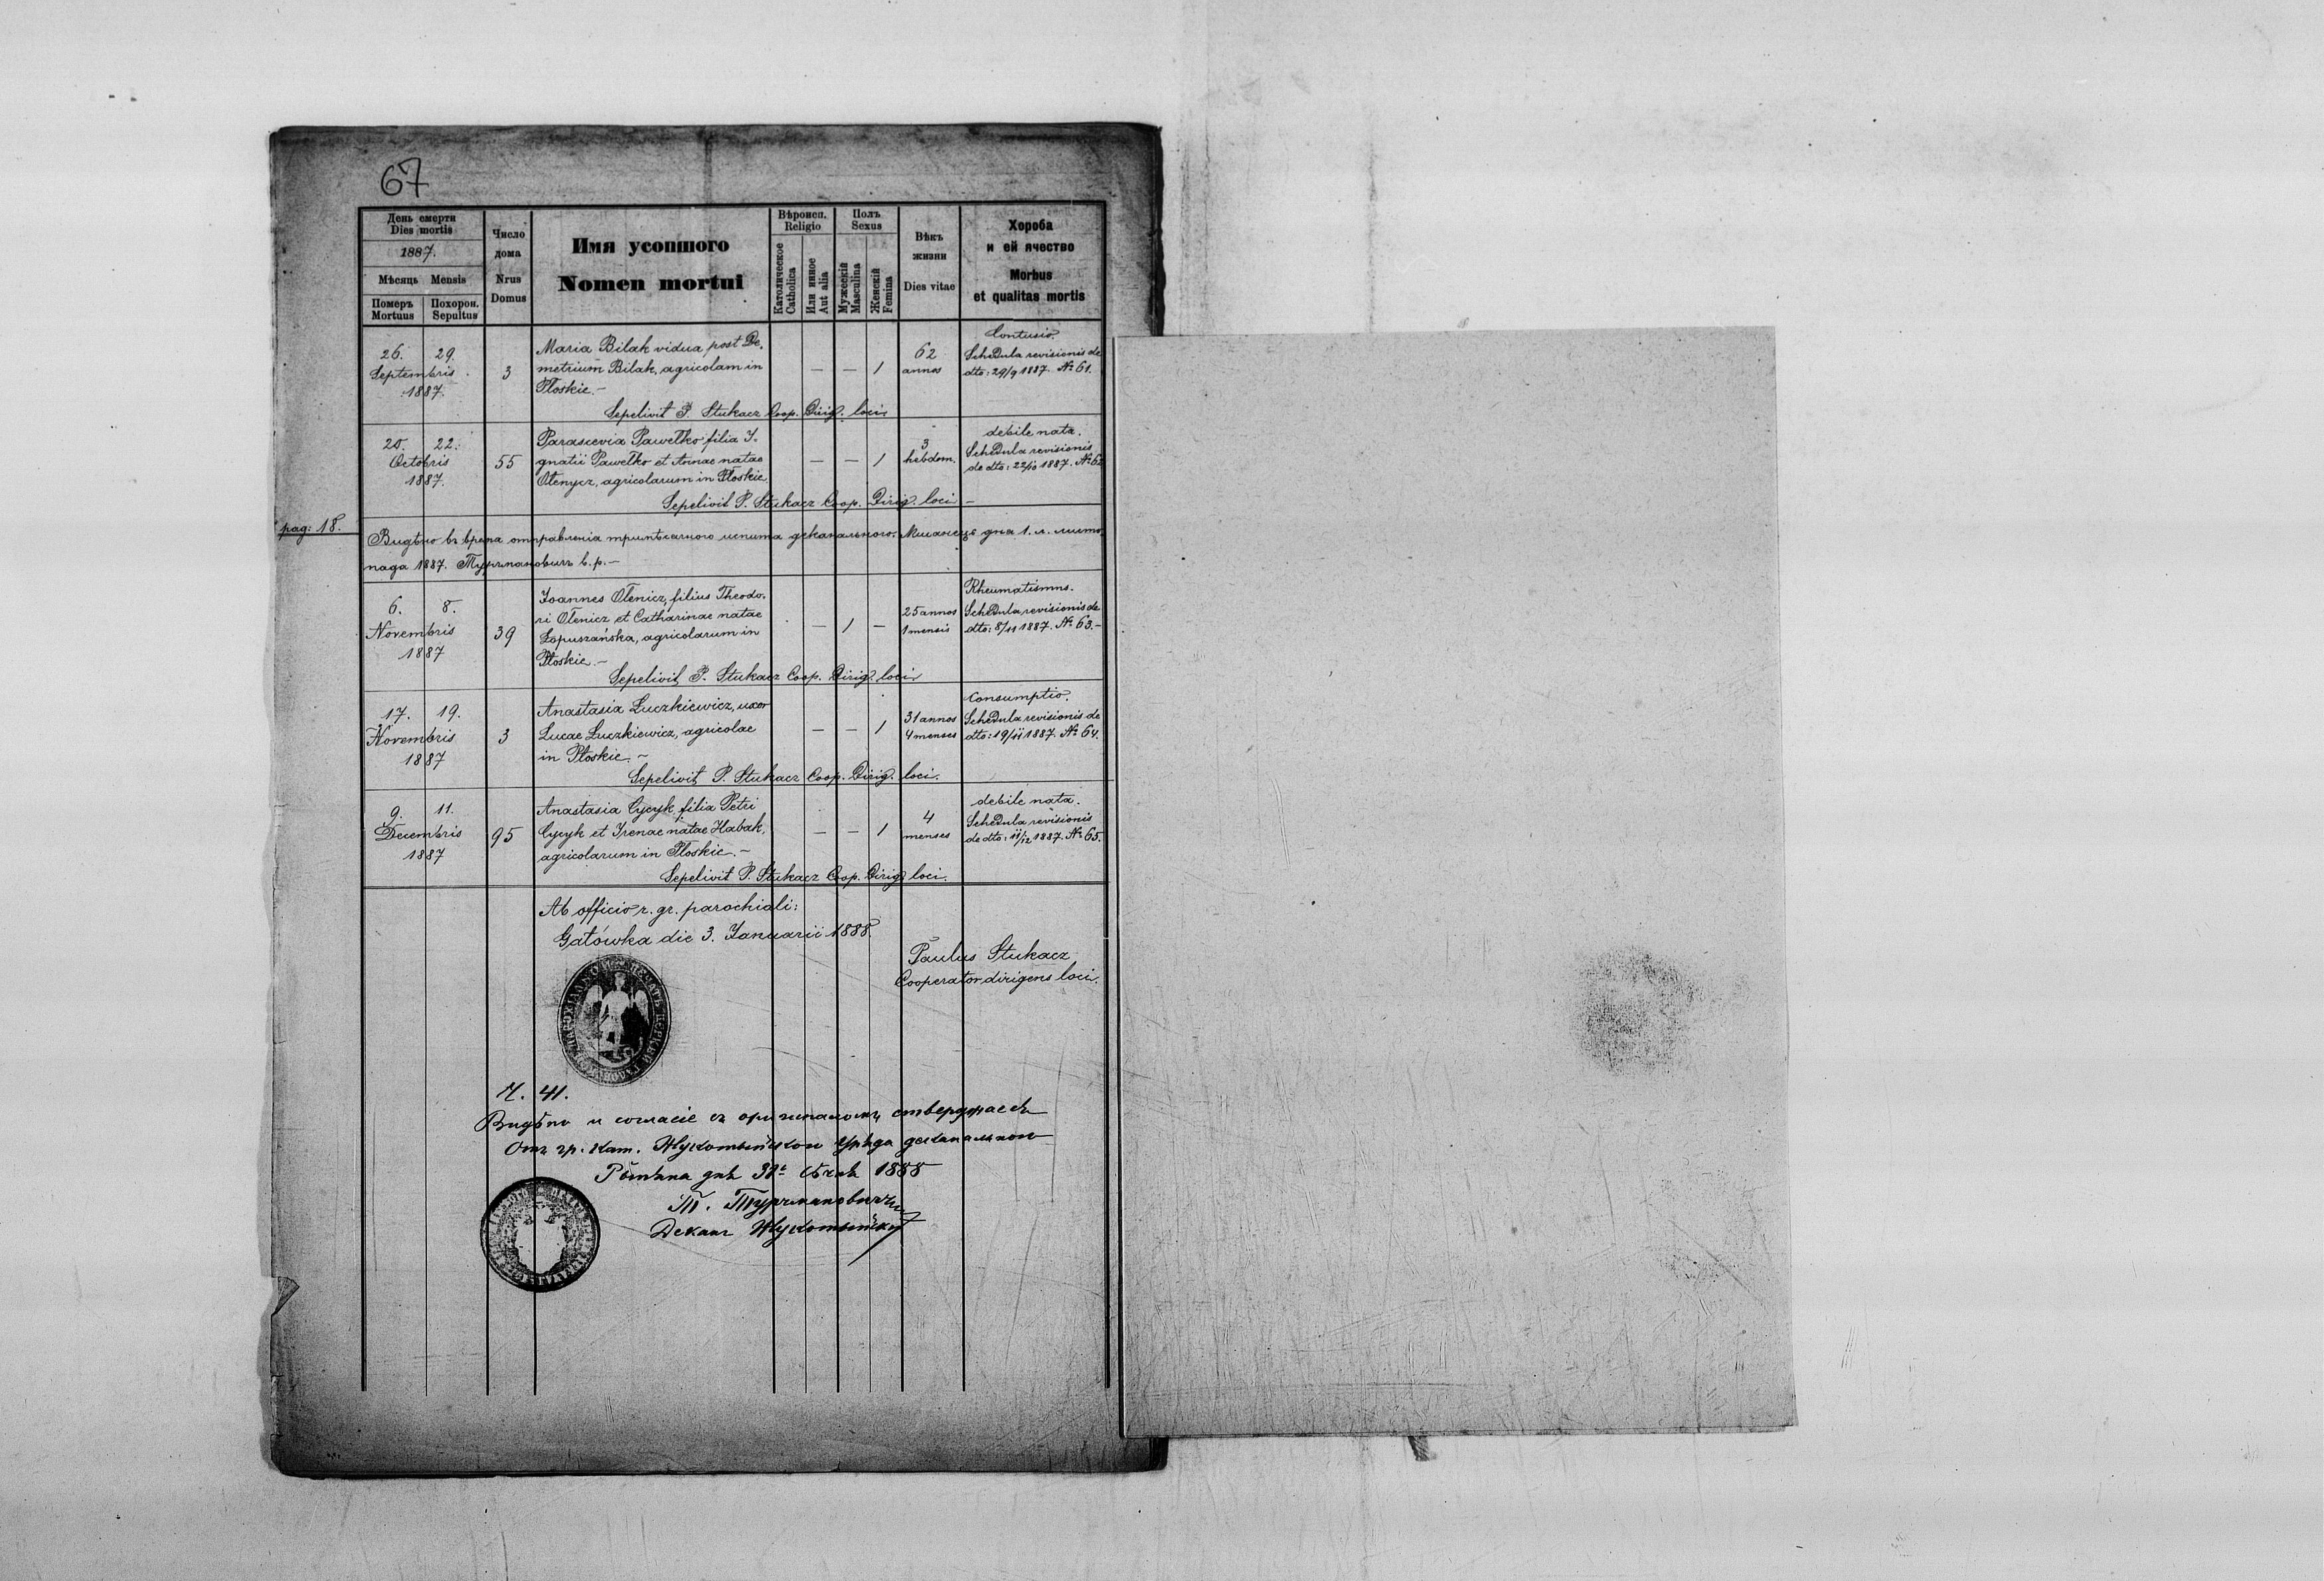 67
День смерти
Dies mortis
1887.
Мѣсяць Mensis
Померъ
Mortuus
Похорон.
Sepultus
Число
дома
Nrus
Domus
Имя усопшого
Nomen mortui
Вѣроисп.
Religio
Католическое
Catholica
Или инное
Aut alia
Полъ
Sexus
Мужескій
Masculina
Женскій
Femina
Вѣкъ
жизни
Dies vitae
Хороба
и ей ячество
Morbus
et qualitas mortis
26. 29.
Septembris
1887.
3
Maria Bilak vidua post De-
metrium Bilak, agricolam in
Płoskie.–
— — 1
62
annos
Contusio.
Schedula revisionis de
dto: 29/9 1887. № 61.
Sepelivit P. Stukacz Coop. Dirig. loci
20. 22.
Octobris
1887.
55
Parascevia Pawełko filia I-
gnatii Pawełko et Annae natae
Ołenycz, agricolarum in Płoskie
— — 1
3
hebdom.
debile nata.
Schedula revisionis
de dto: 22/10 1887. № 62
Sepelivit P. Stukacz Coop. Dirig. loci –
pag: 18.
Видѣно въ время отправленія деканального. дня 1. л. листо-
пада 1887. Турчмановичъ в. р.–
6. 8.
Novembris
1887
39
Joannes Ołenicz, filius Theodo-
ri Ołenicz et Catharinae natae
Łopuszańska, agricolarum in
Płoskie.–
— 1 —
25 annos
1 mensis
Rheumatismus.
Schedula revisionis de
dto: 8/11 1887. № 63.–
Sepelivit P. Stukacz Coop. Dirig. loci
17. 19.
Novembris
1887
3
Anastasia Łuczkiewicz, uxor
Lucae Łuczkiewicz, agricolae
in Płoskie.–
— — 1
31 annos
4 menses
Consumptio.
Schedula revisionis de
dto: 19/11 1887. № 64.
Sepelivit P. Stukacz Coop. Dirig. loci.
9. 11.
Decembris
1887
95
Anastasia Cycyk filia Petri
Cycyk et Irenae natae Habak,
agricolarum in Płoskie.–
— — 1
4
menses
debile nata.
Schedula revisionis
de dto: 11/12 1887. № 65.
Sepelivit P. Stukacz Coop. Dirig. loci.
Ab officio r. gr. parochiali:
Gatówka die 3. Januarii 1888.
Paulus Stukacz
Cooperator dirigens loci.
Ч. 41.
Видѣно и согласіе съ оригиналомъ стверджаесь
Отъ гр. кат. Жукотынского Уряда деканального
днѣ 1888
Т. Турчмановичъ
Деканъ Жукотынскій